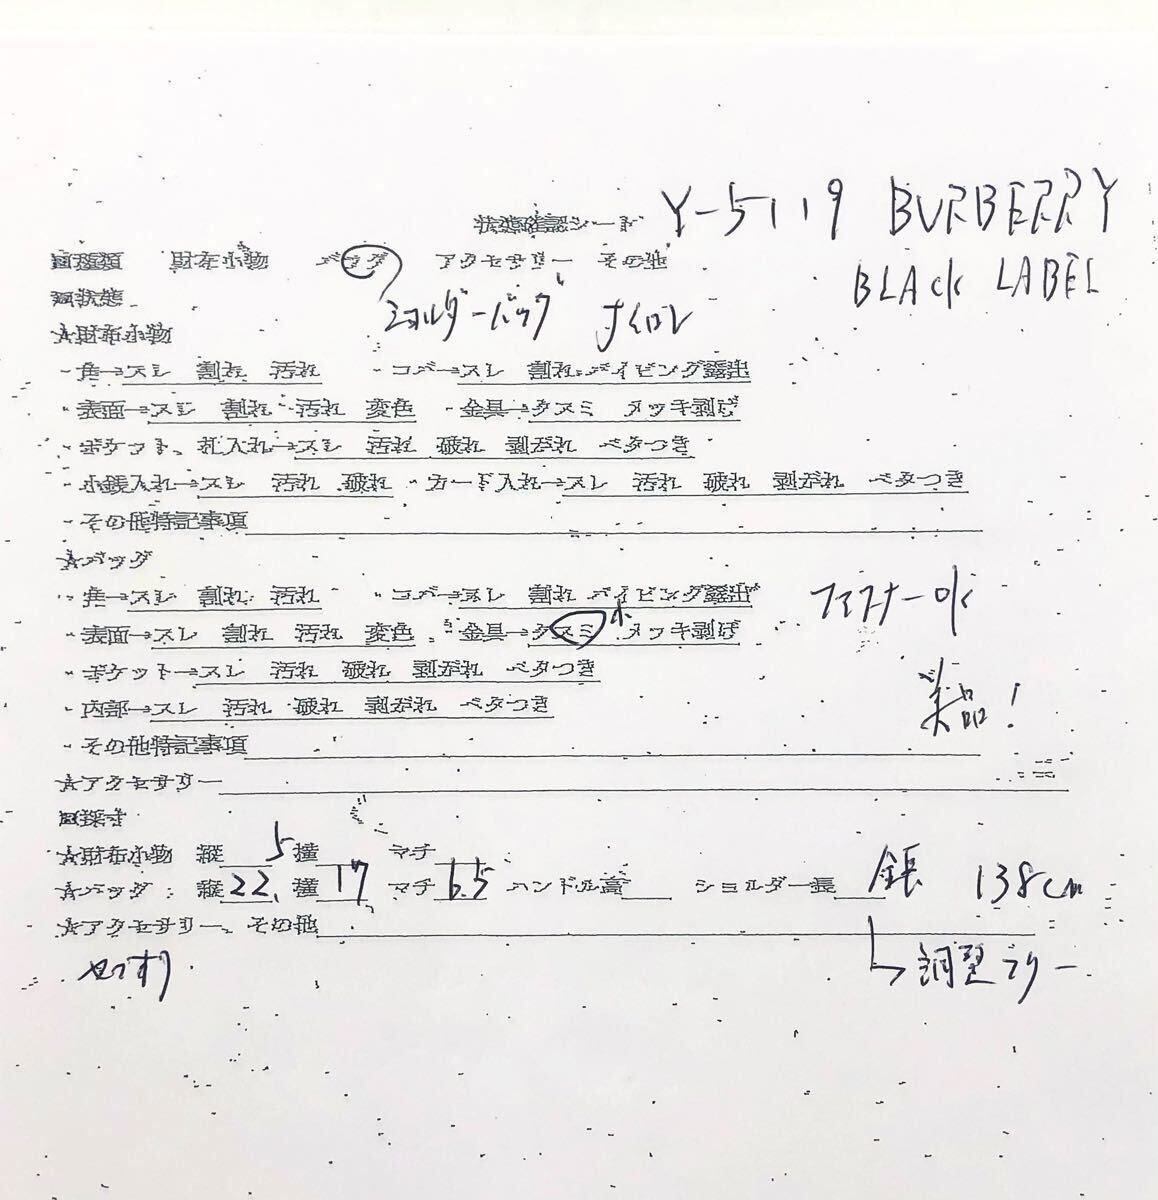 状態確認シート Y-5119 BURBERRY
BLACK LABEL
□種類 財布小物 バッグ アクセサリー その他
□状態
ショルダーバッグ ナイロン
☆財布小物
・角→スレ 割れ 汚れ ・コバ→スレ 割れ パイピング露出
・表面→スレ 割れ 汚れ 変色 ・金具→クスミ メッキ剥げ
・ポケット、札入れ→スレ 汚れ 破れ 剥がれ ベタつき
・小銭入れ→スレ 汚れ 破れ ・カード入れ→スレ 汚れ 破れ 剥がれ ベタつき
・その他特記事項
☆バッグ
・角→スレ 割れ 汚れ ・コバ→スレ 割れ パイピング露出 ファスナーOK
・表面→スレ 割れ 汚れ 変色 ・金具→クスミ小 メッキ剥げ
・ポケット→スレ 汚れ 破れ 剥がれ ベタつき
・内部→スレ 汚れ 破れ 剥がれ ベタつき 美品!
・その他特記事項
☆アクセサリー
□採寸
☆財布小物 縦 横 マチ
5
☆バッグ:縦22 横17 マチ6.5 ハンドル高 ショルダー長 全長 138cm
☆アクセサリー、その他
↳調整フリー